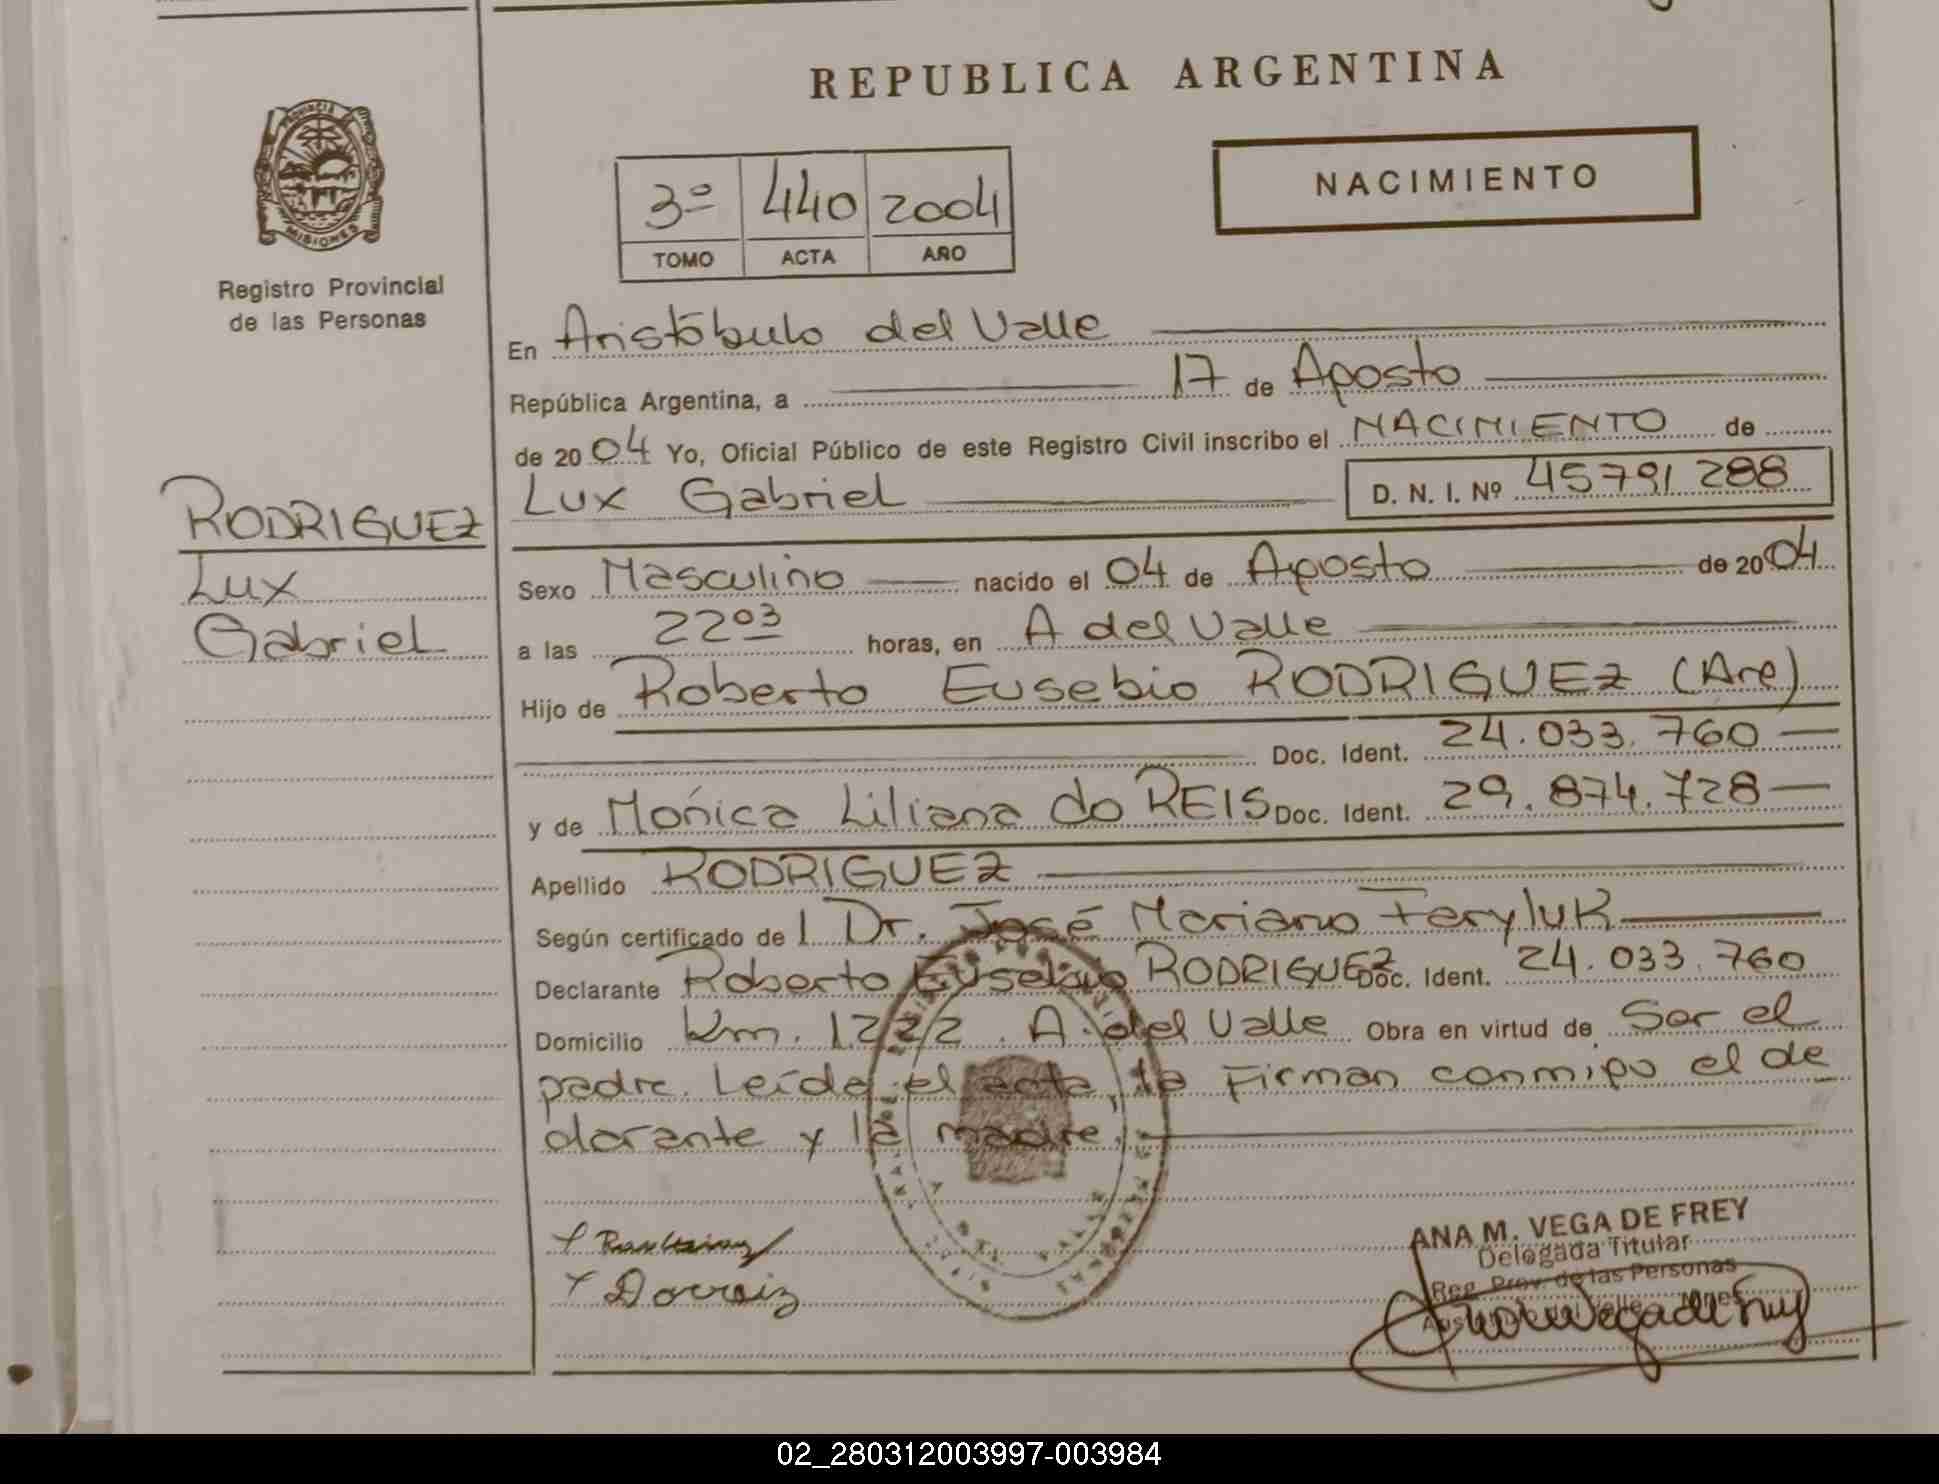 REPUBLICA ARGENTINA
PROVINCIA
MISIONES
Registro Provincial
de las Personas
NACIMIENTO
3º 440 2004
TOMO ACTA AÑO
En Aristóbulo del Valle
República Argentina, a 17 de Agosto
de 2004 Yo, Oficial Público de este Registro Civil inscribo el NACIMIENTO de
Lux Gabriel D. N. I. Nº 45791288
RODRIGUEZ
Lux
Gabriel
Sexo Masculino nacido el 04 de Agosto de 2004
a las 22 03 horas, en A del Valle
Hijo de Roberto Eusebio RODRIGUEZ (Are)
Doc. Ident. 24.033.760
y de Mónica Liliana do REIS Doc. Ident. 29.874.728
Apellido RODRIGUEZ
Según certificado de l Dr. José Mariano Feryluk
Declarante Roberto Eusebio RODRIGUEZ Doc. Ident. 24.033.760
Domicilio Km. 1222. A. del Valle Obra en virtud de Ser el
padre. Leída el acta, la Firman conmigo el de
clarante y la madre.
ANA M. VEGA DE FREY
Delegada Titular
Reg. Prov. de las Personas
02_280312003997-003984